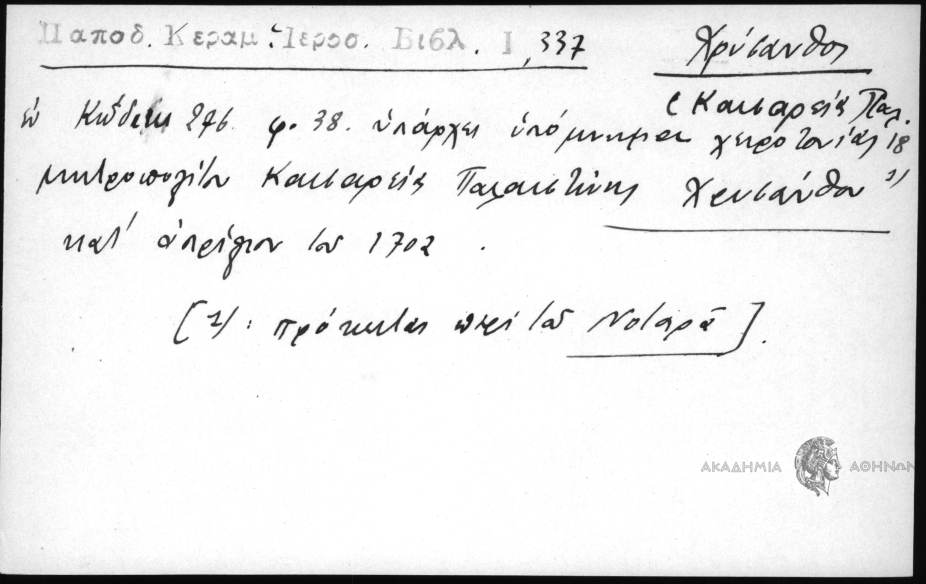 Παποδ. Κεραμ. Ἱεροσ. Βιβλ. I, 337
Χρύσανθος
(Καισαρείας Παλ.
ἐν Κώδικι 276. φ. 38. ὑπάρχει ὑπόμνημα χειροτονίας 18
μητροπολίτου Καισαρείας Παλαιστίνης Χρυσάνθου 1)
κατ' ἀπρίλιον τοῦ 1702.
[1): πρόκειται περὶ τοῦ Νοταρᾶ].
ΑΚΑΔΗΜΙΑ ΑΘΗΝΩΝ